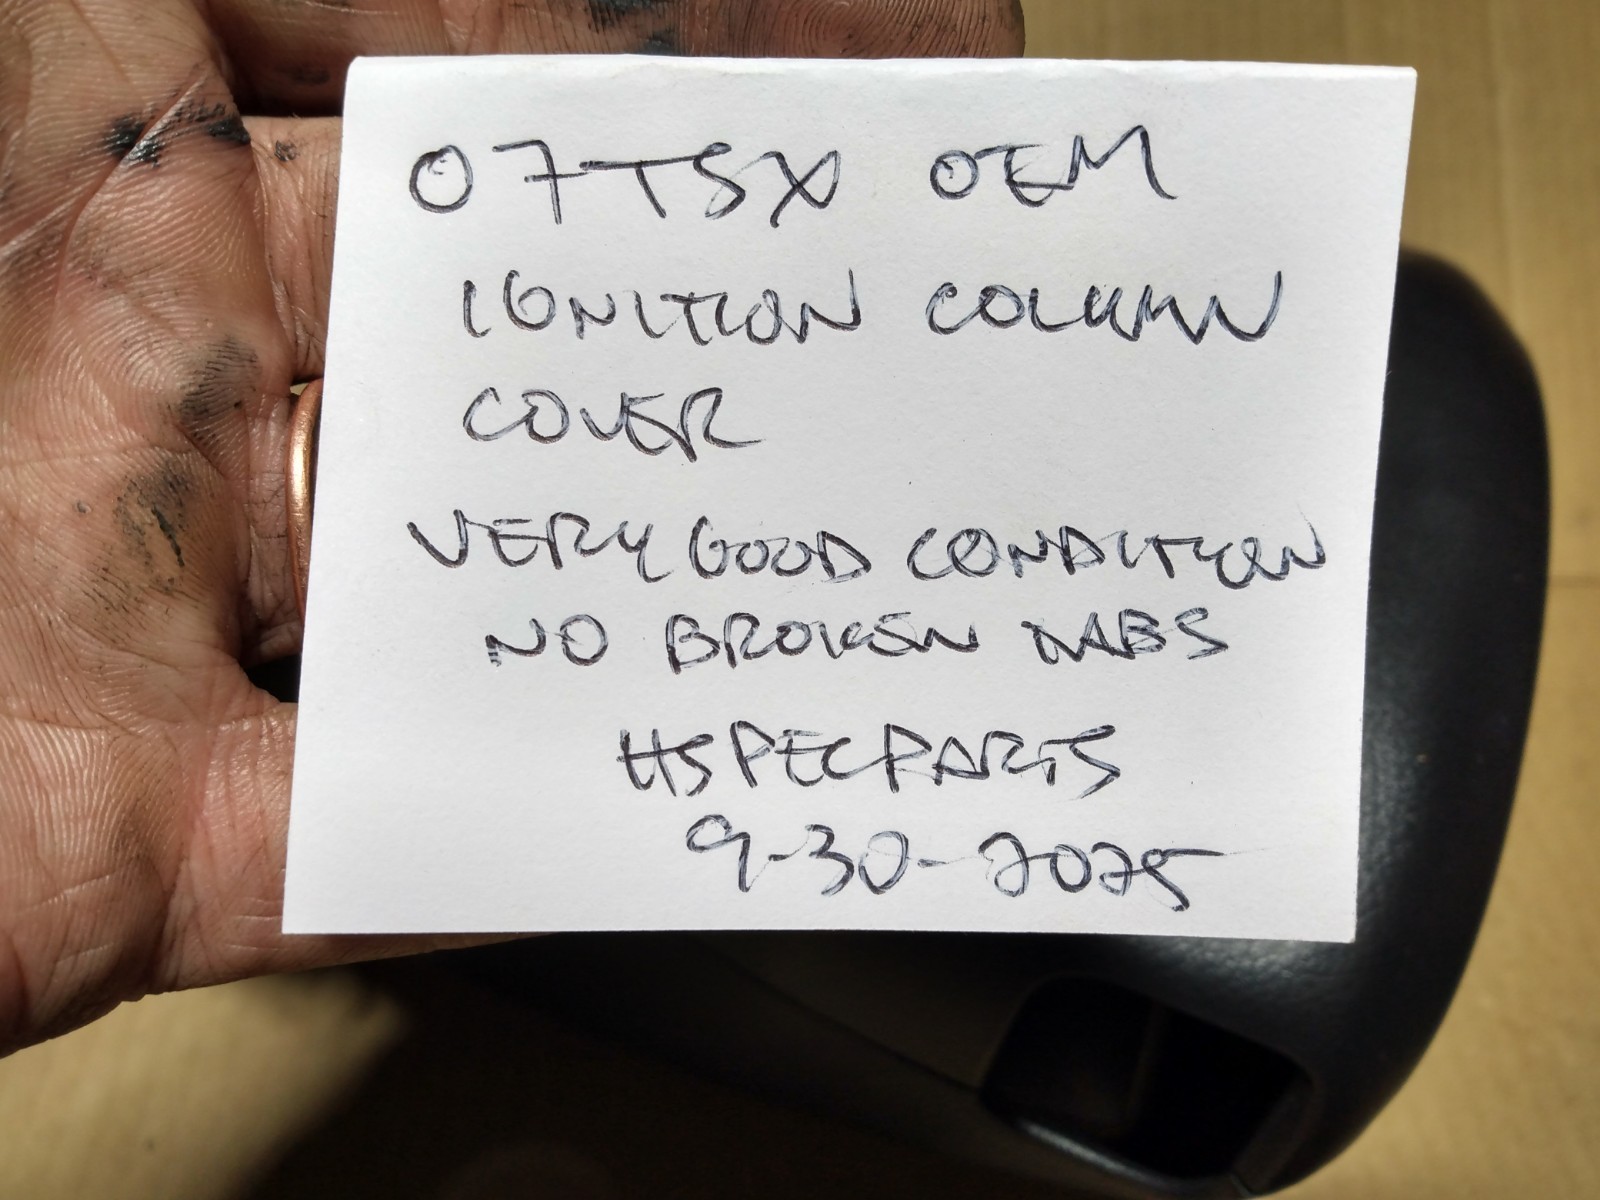 07 TSX OEM
IGNITION COLUMN
COVER
VERY GOOD CONDITION
NO BROKEN TABS
HSPECPARTS
9-30-2025